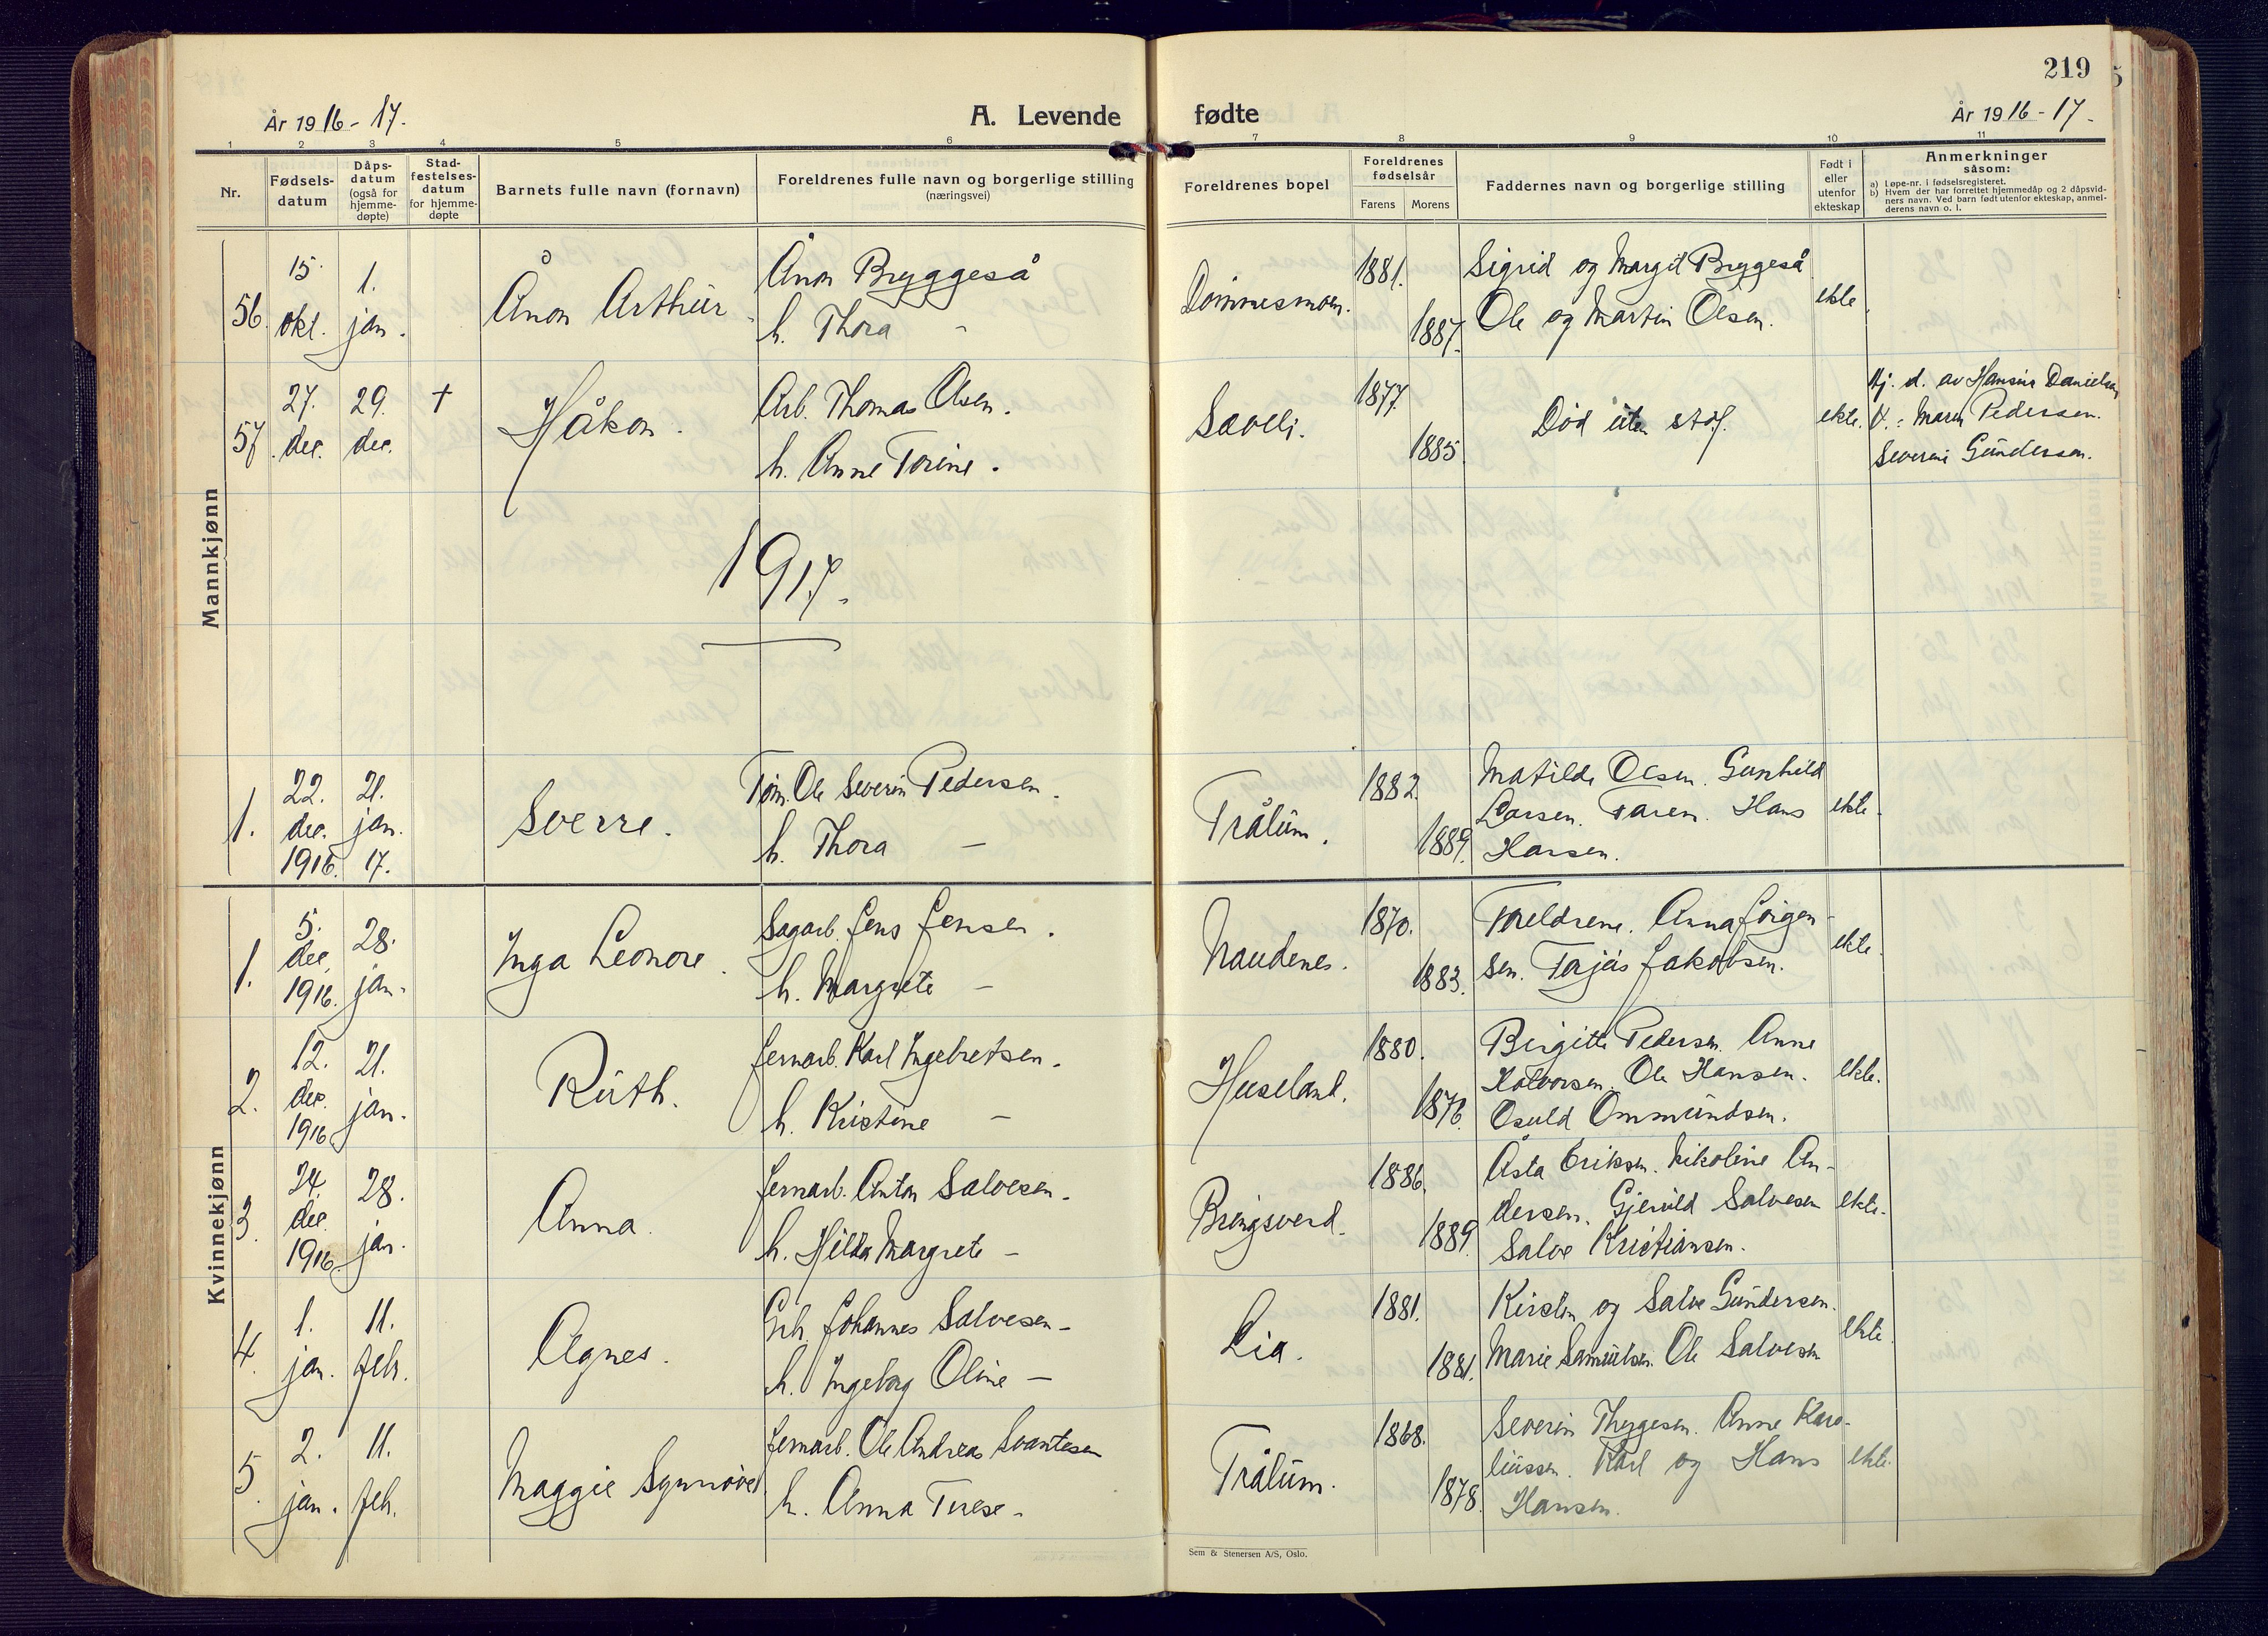 219
År 1916-17.
A. Levende fødte
År 1916-17.
1 2 3 4 5 6 7 8 9 10 11
Nr.
Fødsels-
datum
Dåps-
datum
(også for
hjemme-
døpte)
Stad-
festelses-
datum
for hjemme-
døpte
Barnets fulle navn (fornavn)
Foreldrenes fulle navn og borgerlige stilling
(næringsvei)
Foreldrenes bopel
Foreldrenes
fødselsår
Farens Morens
Faddernes navn og borgerlige stilling
Født i
eller
utenfor
ekteskap
Anmerkninger
såsom:
a) Løpe-nr. i fødselsregisteret.
b) Hvem der har forrettet hjemmedåp og 2 dåpsvid-
ners navn. Ved barn født utenfor ekteskap, anmel-
derens navn o. l.
Mannkjønn
56. 15. okt. 1. jan. Ånon Arthur
Ånon Bryggeså
h. Thora -
Dømmesmoen. 1881. 1887.
Sigrid og Margit Bryggeså
Ole og Martin Olsen.
ekte.
57. 27. dec. 29. dec. † Håkon.
Arb. Thomas Olsen.
h. Anne Torine.
Sæveli. 1877. 1885.
Død uten stdf.
ekte.
Hj. d. av Hansine Danielsen
V.: Maren Pedersen.
Severine Gundersen.
1917.
1. 22. dec. 1916. 21. jan. 17. Sverre.
Tøm. Ole Severin Pedersen.
h. Thora -
Trålum. 1882. 1889.
Matilde Olsen. Gunhild
Larsen. Faren. Hans
Hansen.
ekte.
Kvinnekjønn
1. 5. dec. 1916. 28. jan. Inga Leonore.
Sagarb. Jens Jensen.
h. Margrete -
Naudenes. 1870. 1883.
Foreldrene. Anna Jørgen-
sen. Terjus Jakobsen.
ekte.
2. 12. dec. 1916 21. jan. Ruth.
Jernarb. Karl Ingebretsen.
h. Kristine -
Huseland. 1880. 1876.
Birgitte Pedersen. Anne
Halvorsen. Ole Hansen.
Osuld Ommundsen.
ekte.
3. 24. dec. 1916. 28. jan. Anna.
Jernarb. Anton Salvesen.
h. Hilda Margrete -
Bringsverd. 1886. 1889.
Åsta Eriksen. Nikoline An-
dersen. Gjeruld Salvesen
Salve Kristiansen.
ekte.
4. 1. jan. 11. feb. Agnes.
Grb. Johannes Salvesen -
h. Ingeborg Oline -
Lia. 1881. 1881.
Kirsten og Salve Gundersen.
Marie Samuelsen. Ole Salvesen
ekte.
5. 2. jan. 11. feb. Maggie Synnøve
Jernarb. Ole Andreas Svantesen
h. Anna Terese -
Trålum. 1868. 1878.
Severin Thygesen. Anne Karo-
liussen. Karl og Hans
Hansen.
ekte.
Sem & Stenersen A/S, Oslo.